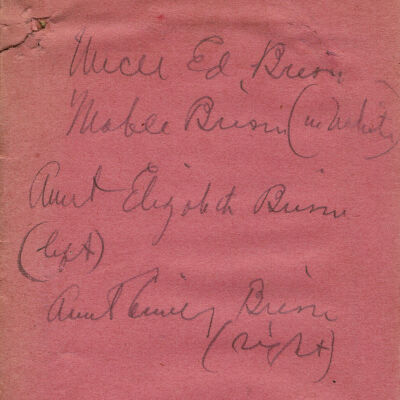 Uncle Ed Brion
Mable Brion (in white)
Aunt Elizabeth Brion
(left)
Aunt Emily Brion
(right)